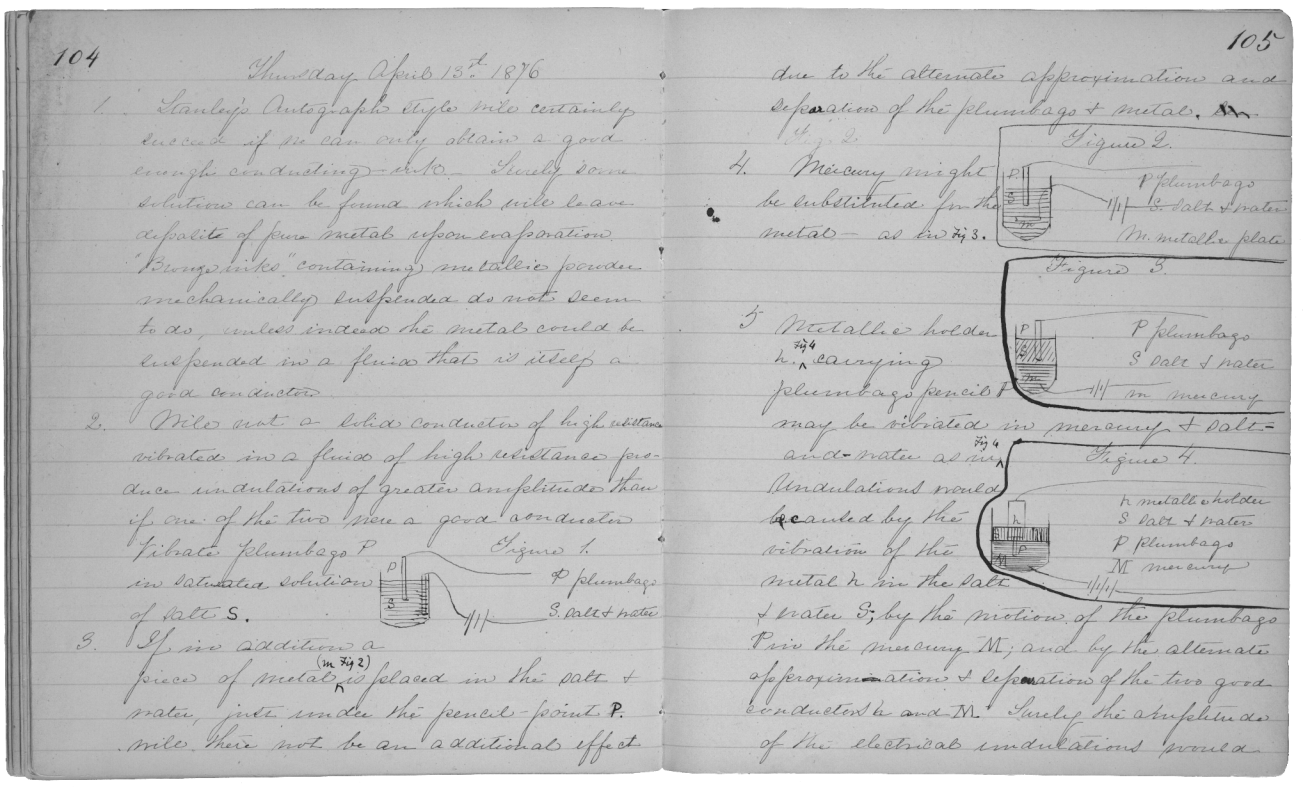 104
Thursday April 13st 1876
1. Stanley's Autograph style will certainly
succeed if he can only obtain a good
enough conducting-ink. Surely some
solution can be found which will leave
deposits of pure metal upon evaporation.
"Bronze inks" containing metallic powder
mechanically suspended do not seem
to do, unless indeed the metal could be
suspended in a fluid that is itself a
good conductor
2. Will not a solid conductor of high resistance
vibrated in a fluid of high resistance pro-
duce undulations of greater amplitude than
if one of the two were a good conductor
Vibrate plumbago P
in saturated solution
of salt S.
Figure 1.
P
S
P plumbago
S. salt & water
3. If in addition a
piece of metal (m Fig 2) is placed in the salt &
water, just under the pencil-point P.
will there not be an additional effect
105
due to the alternate approximation and
separation of the plumbago & metal.
Fig. 2
4. Mercury might
be substituted for the
metal — as in Fig 3.
Figure 2.
P
S
m
P plumbago
S. salt & water
M. metallic plate
Figure 3.
P
S
m
P plumbago
S salt & water
m mercury
5 Metallic holder
h. Fig 4 carrying
plumbago pencil P
may be vibrated in mercury & salt-
and-water as in Fig 4
Undulations would
be caused by the
vibration of the
metal h in the salt
& water S; by the motion of the plumbago
P in the mercury M; and by the alternate
approximation & separation of the two good
conductors h and M. Surely the amplitude
of the electrical undulations would
Figure 4.
h
S
P
M
h metallic holder
S salt & water
P plumbago
M mercury